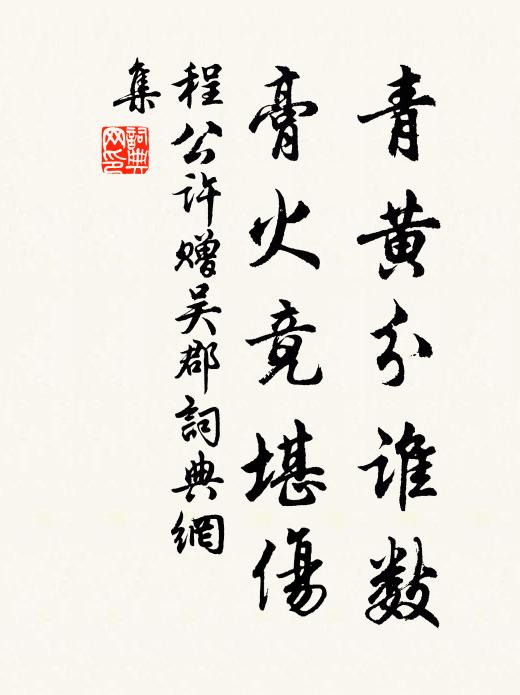 青黄分谁数
膏火竟堪傷
程公许赠吴郡詞典網
集
詞典网印